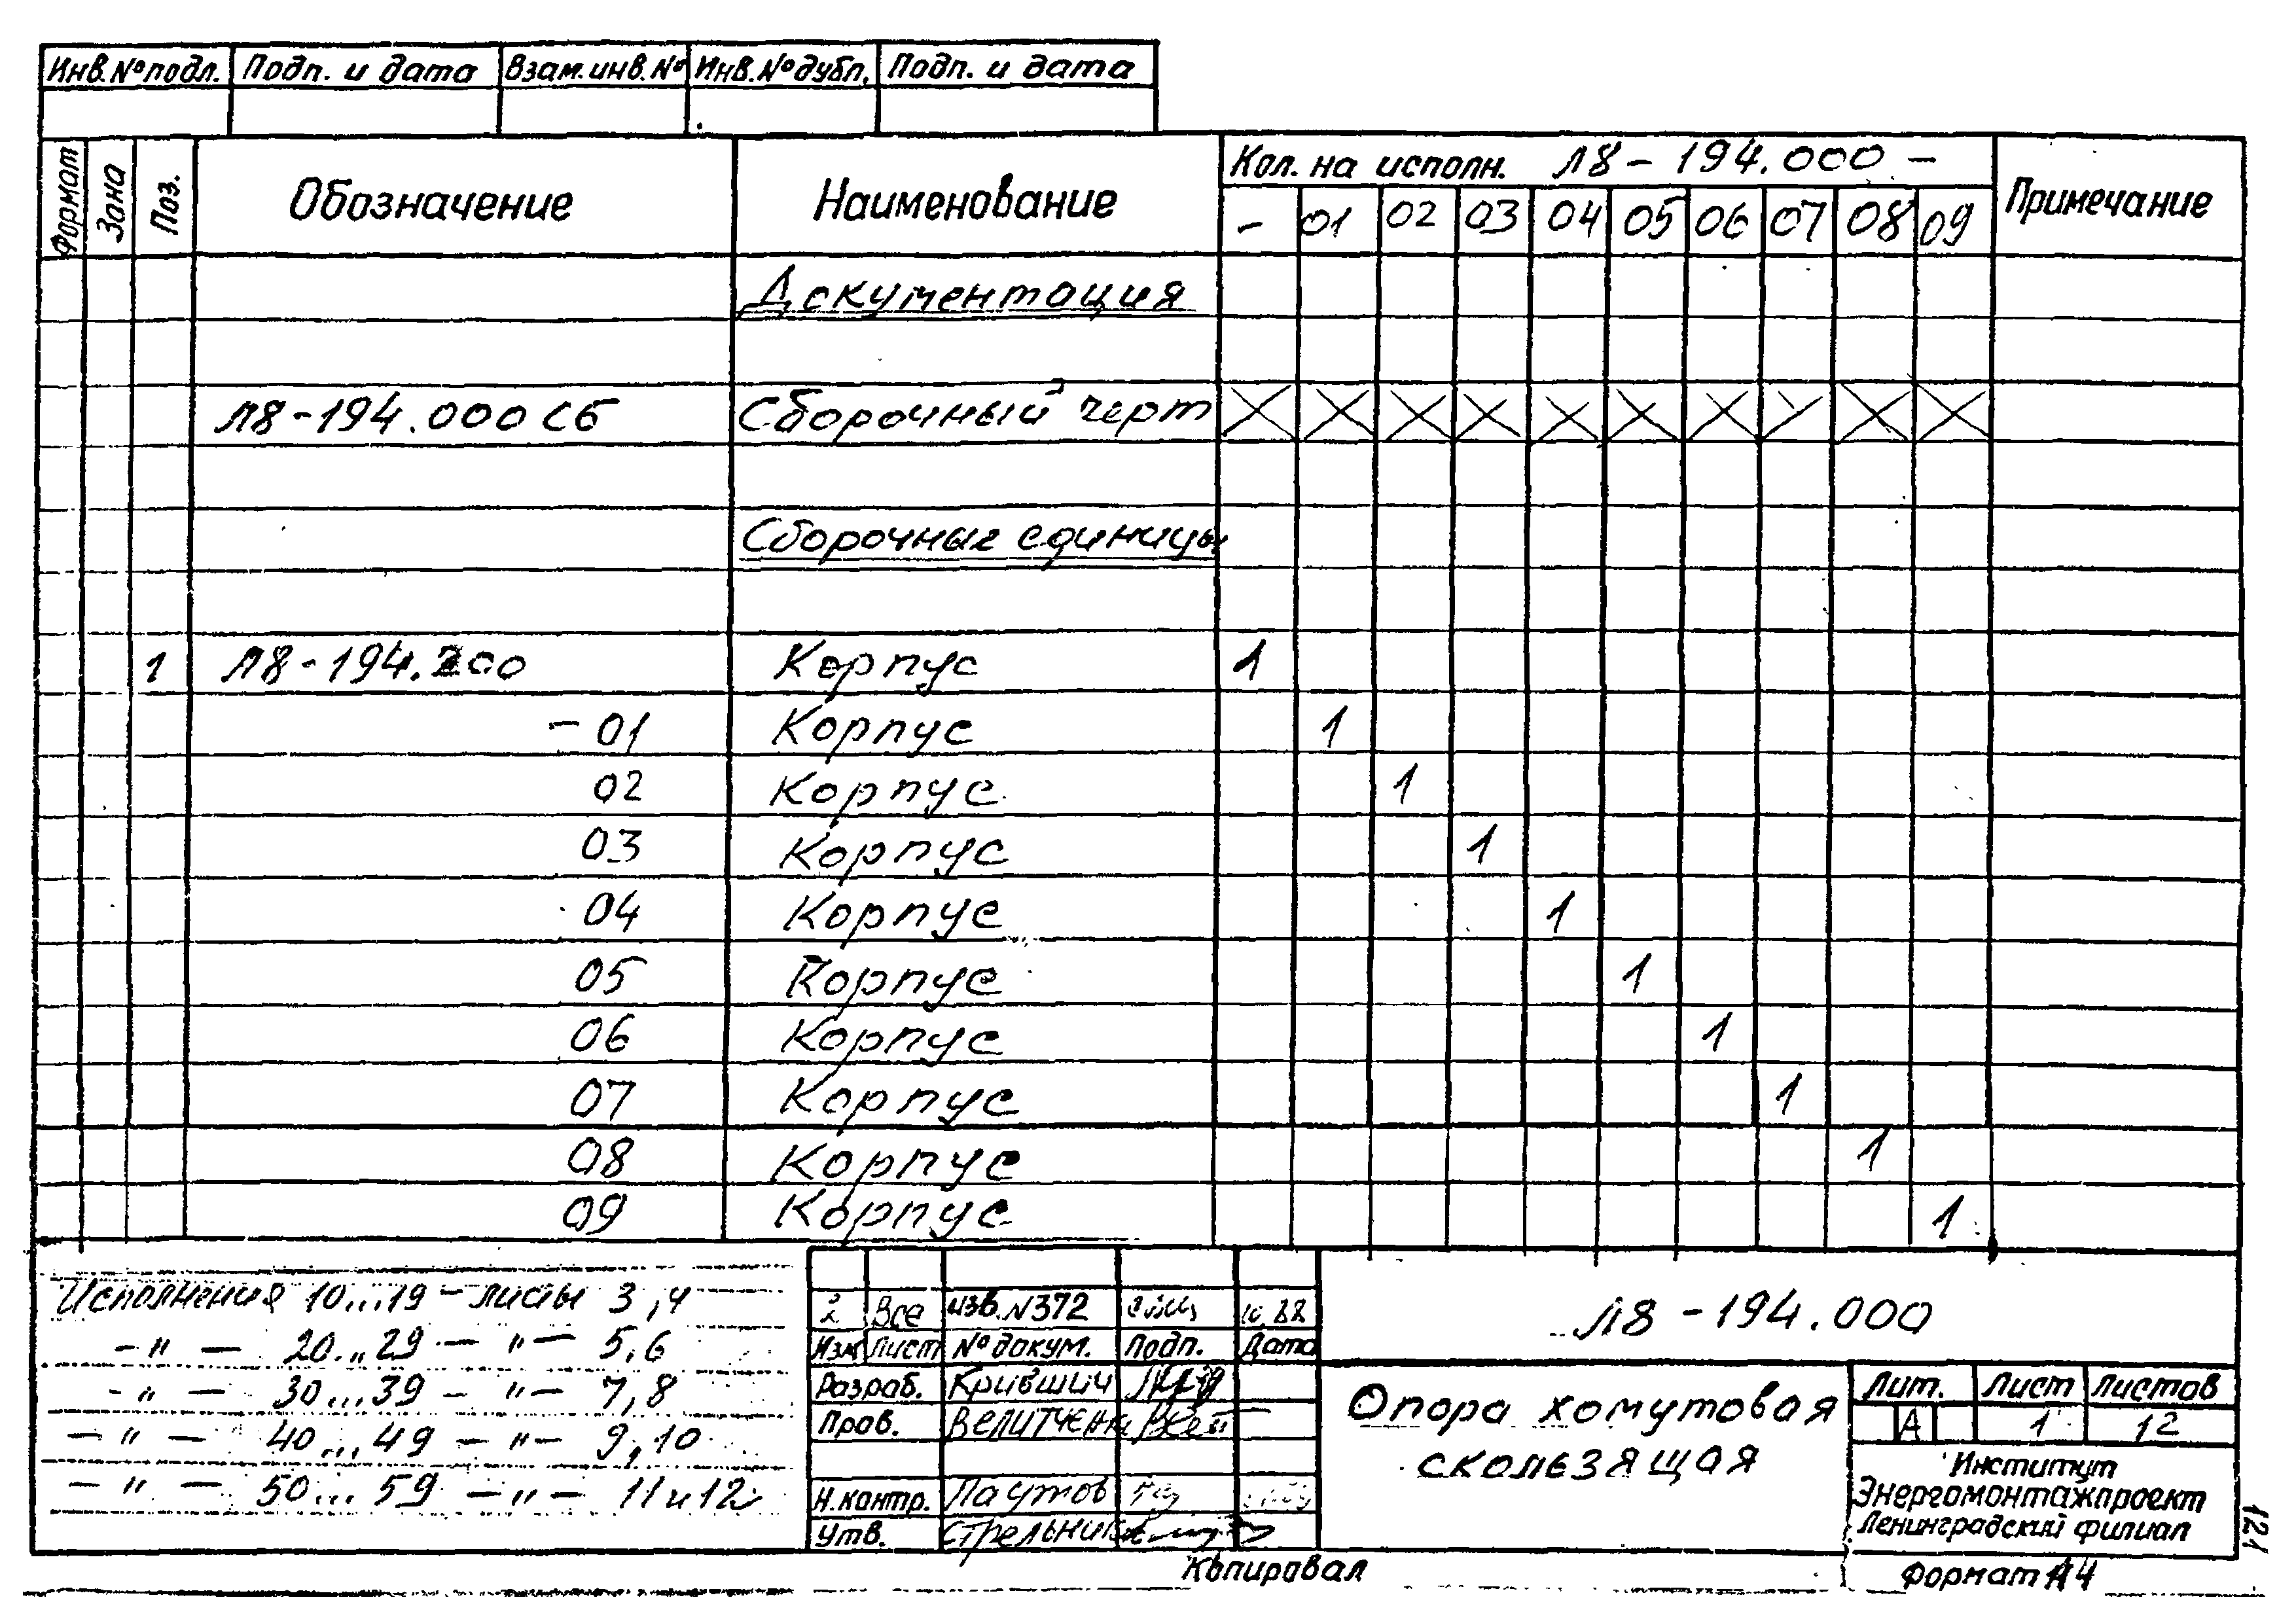 Инв.№подл. Подп. и дата Взам.инв.№ Инв.№дубл. Подп. и дата
Формат Зона Поз. Обозначение Наименование Кол. на исполн. Л8-194.000 - Примечание
- 01 02 03 04 05 06 07 08 09
Документация
Л8-194.000 СБ Сборочный черт
Сборочные единицы
1 Л8-194.200 Корпус 1
- 01 Корпус 1
02 Корпус 1
03 Корпус 1
04 Корпус 1
05 Корпус 1
06 Корпус 1
07 Корпус 1
08 Корпус 1
09 Корпус 1
Исполнения 10...19 - листы 3,4
-"- 20..29 -"- 5,6
-"- 30...39 -"- 7,8
-"- 40...49 -"- 9,10
-"- 50...59 -"- 11и12
2 Все изв.N372 10.88
Изм Лист № докум. Подп. Дата
Разраб. Крившич
Пров. Велитченк
Н.контр. Паутов
Утв. Стрельник
Л8-194.000
Опора хомутовая
скользящая
Лит. Лист Листов
А 1 12
Институт
Энергомонтажпроект
Ленинградский филиал
Копировал
Формат А4
121